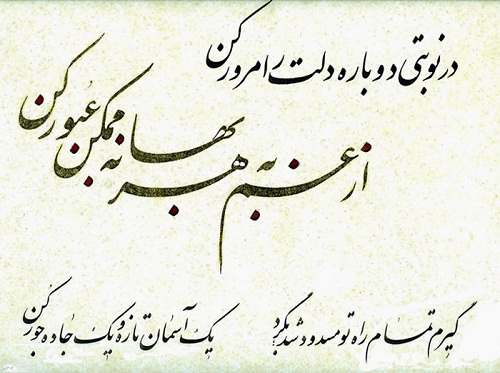 در نوبتی دوباره دلت را مرور کن
از غم به هر بهانه ممکن عبور کن
گیرم تمام راه تو مسدود شد بگرد
یک آسمان تازه و یک جاده جور کن